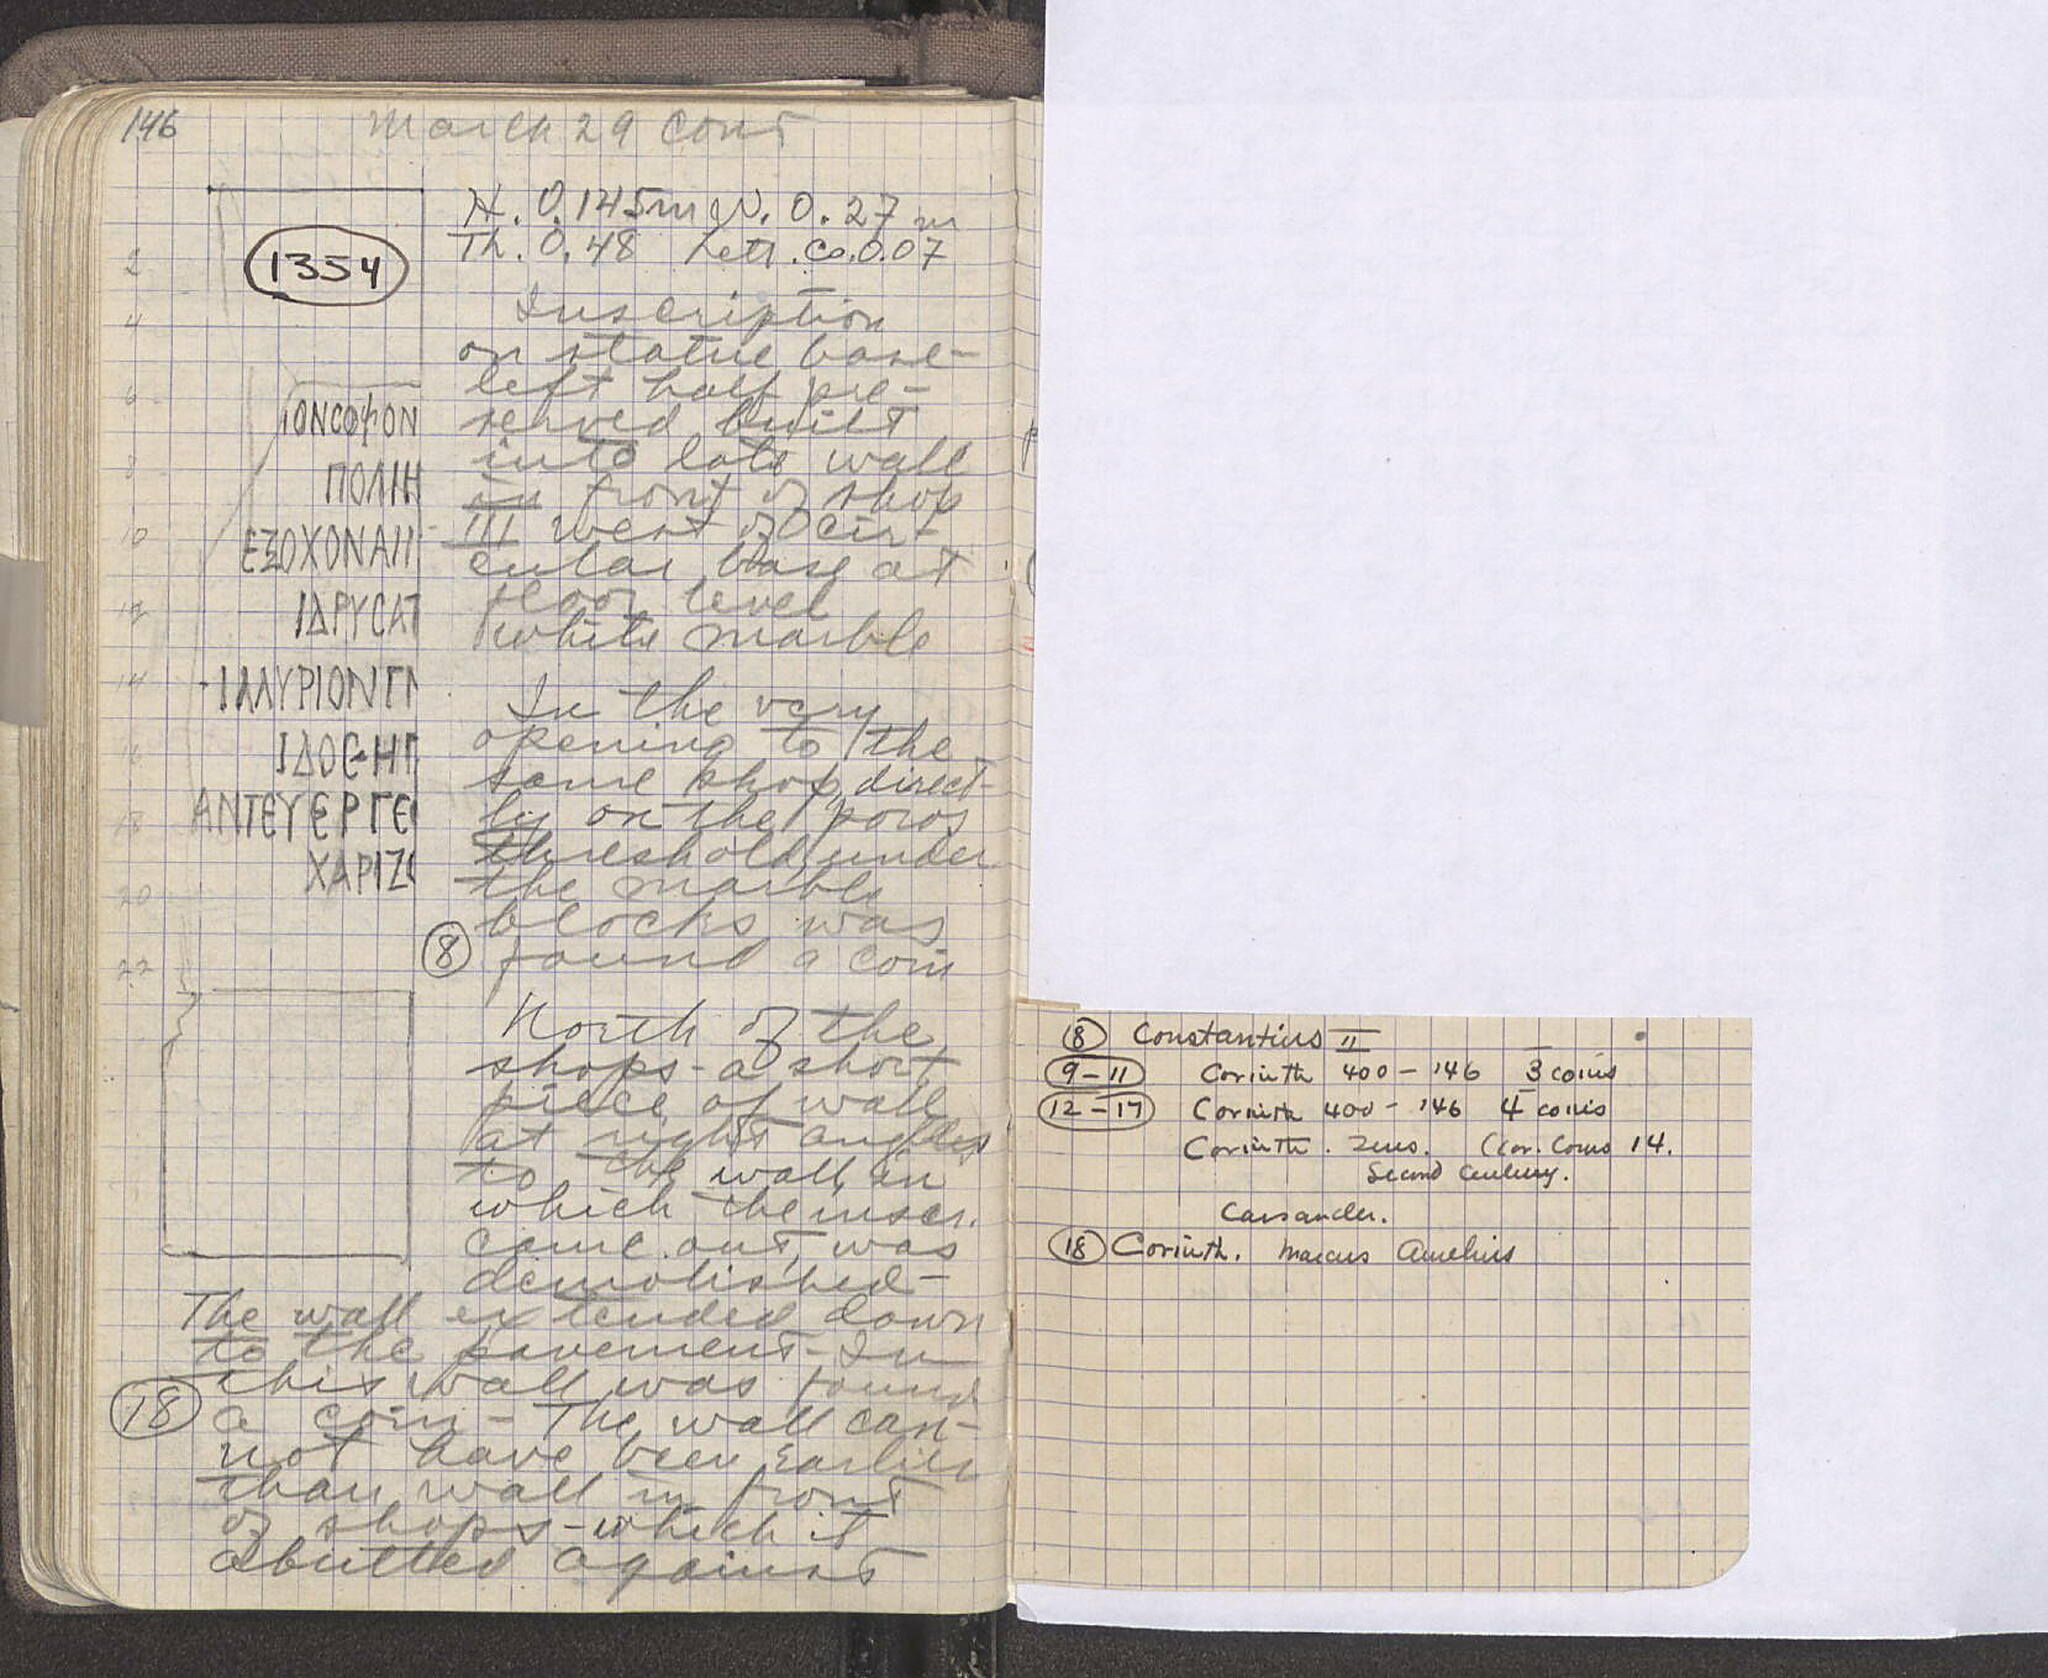 146
March 29 Cont
H. 0.145m W. 0.27 m
Th. 0.48 Lett. Co. 0.07
1354
Inscription
on statue base-
left half pre-
served built
into late wall
in front of shop
III west of cir-
cular base at
floor level
white marble
2
4
6
8
10
12
14
16
18
20
22
ΙΟΝϹΟΦΟΝ
ΠΟΛΙΗ
ΕΞΟΧΟΝΑΙΙ
ΙΔΡΥϹΑΤ
ΙΛΛΥΡΙΟΝΓΙ
ΙΔΟϹΗΓ
ΑΝΤΕΥΕΡΓΕ
ΧΑΡΙΖ
In the very
opening to the
same shop, direct-
ly on the poros
threshold, under
the marble
blocks was
8 found a coin
North of the
shops - a short
piece of wall
at right angles
to the wall in
which the inscr.
came out, was
demolished-
The wall extended down
to the pavement - In
this wall was found
18 a coin - The wall can-
not have been earlier
than wall in front
of shops - which it
abutted against
8 Constantius II
9-11 Corinth 400 - 146 3 coins
12-17 Corinth 400 - 146 4 coins
Corinth. Zeus. (Cor. Coins 14.
Second Century.
Cassander.
18 Corinth. Marcus Aurelius